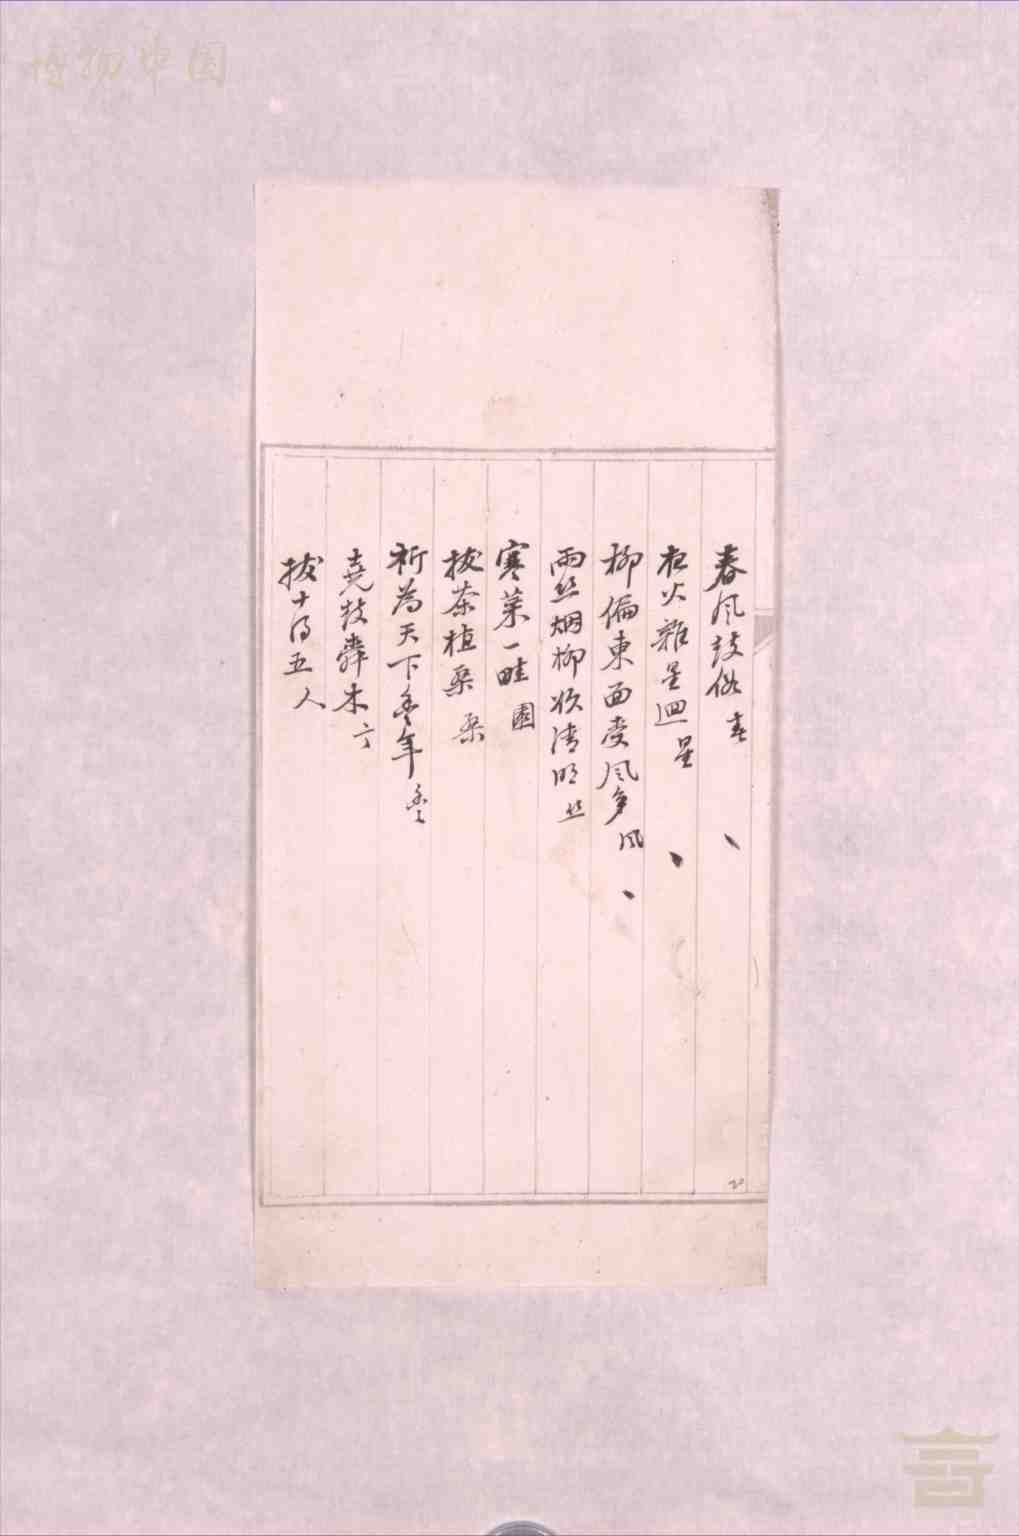 春風鼓俗 春
夜火雜星迴 星
柳偏東面受風多 風
雨丝烟柳欲清明 丝
寒菜一畦 園
拔茶植桑 桑
祈為天下登年
堯鼓舜木
拔十得五人
20
博物中国